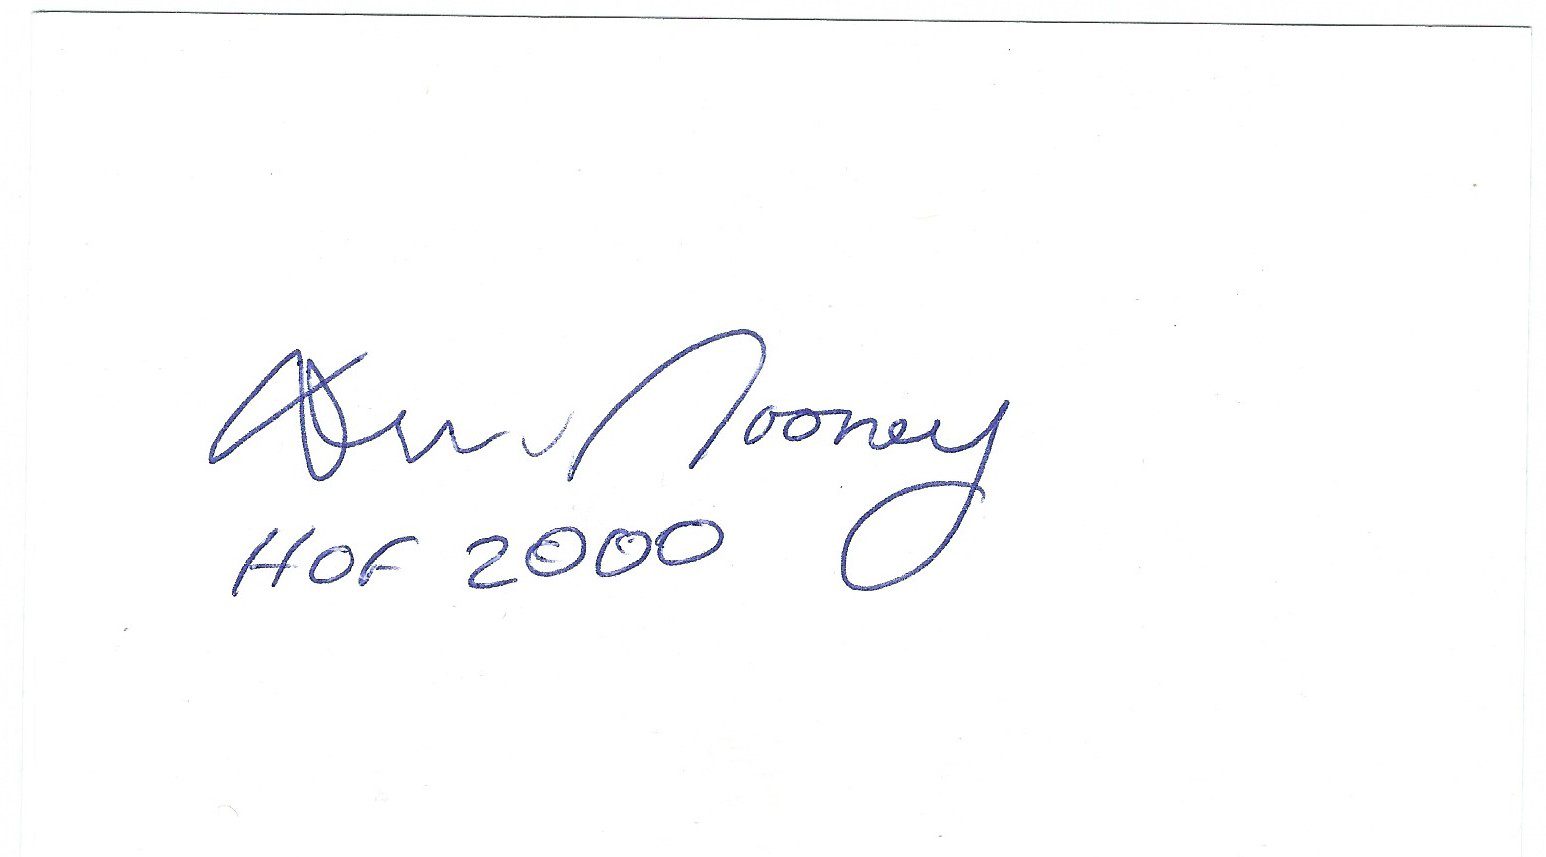 Dan Rooney
HOF 2000